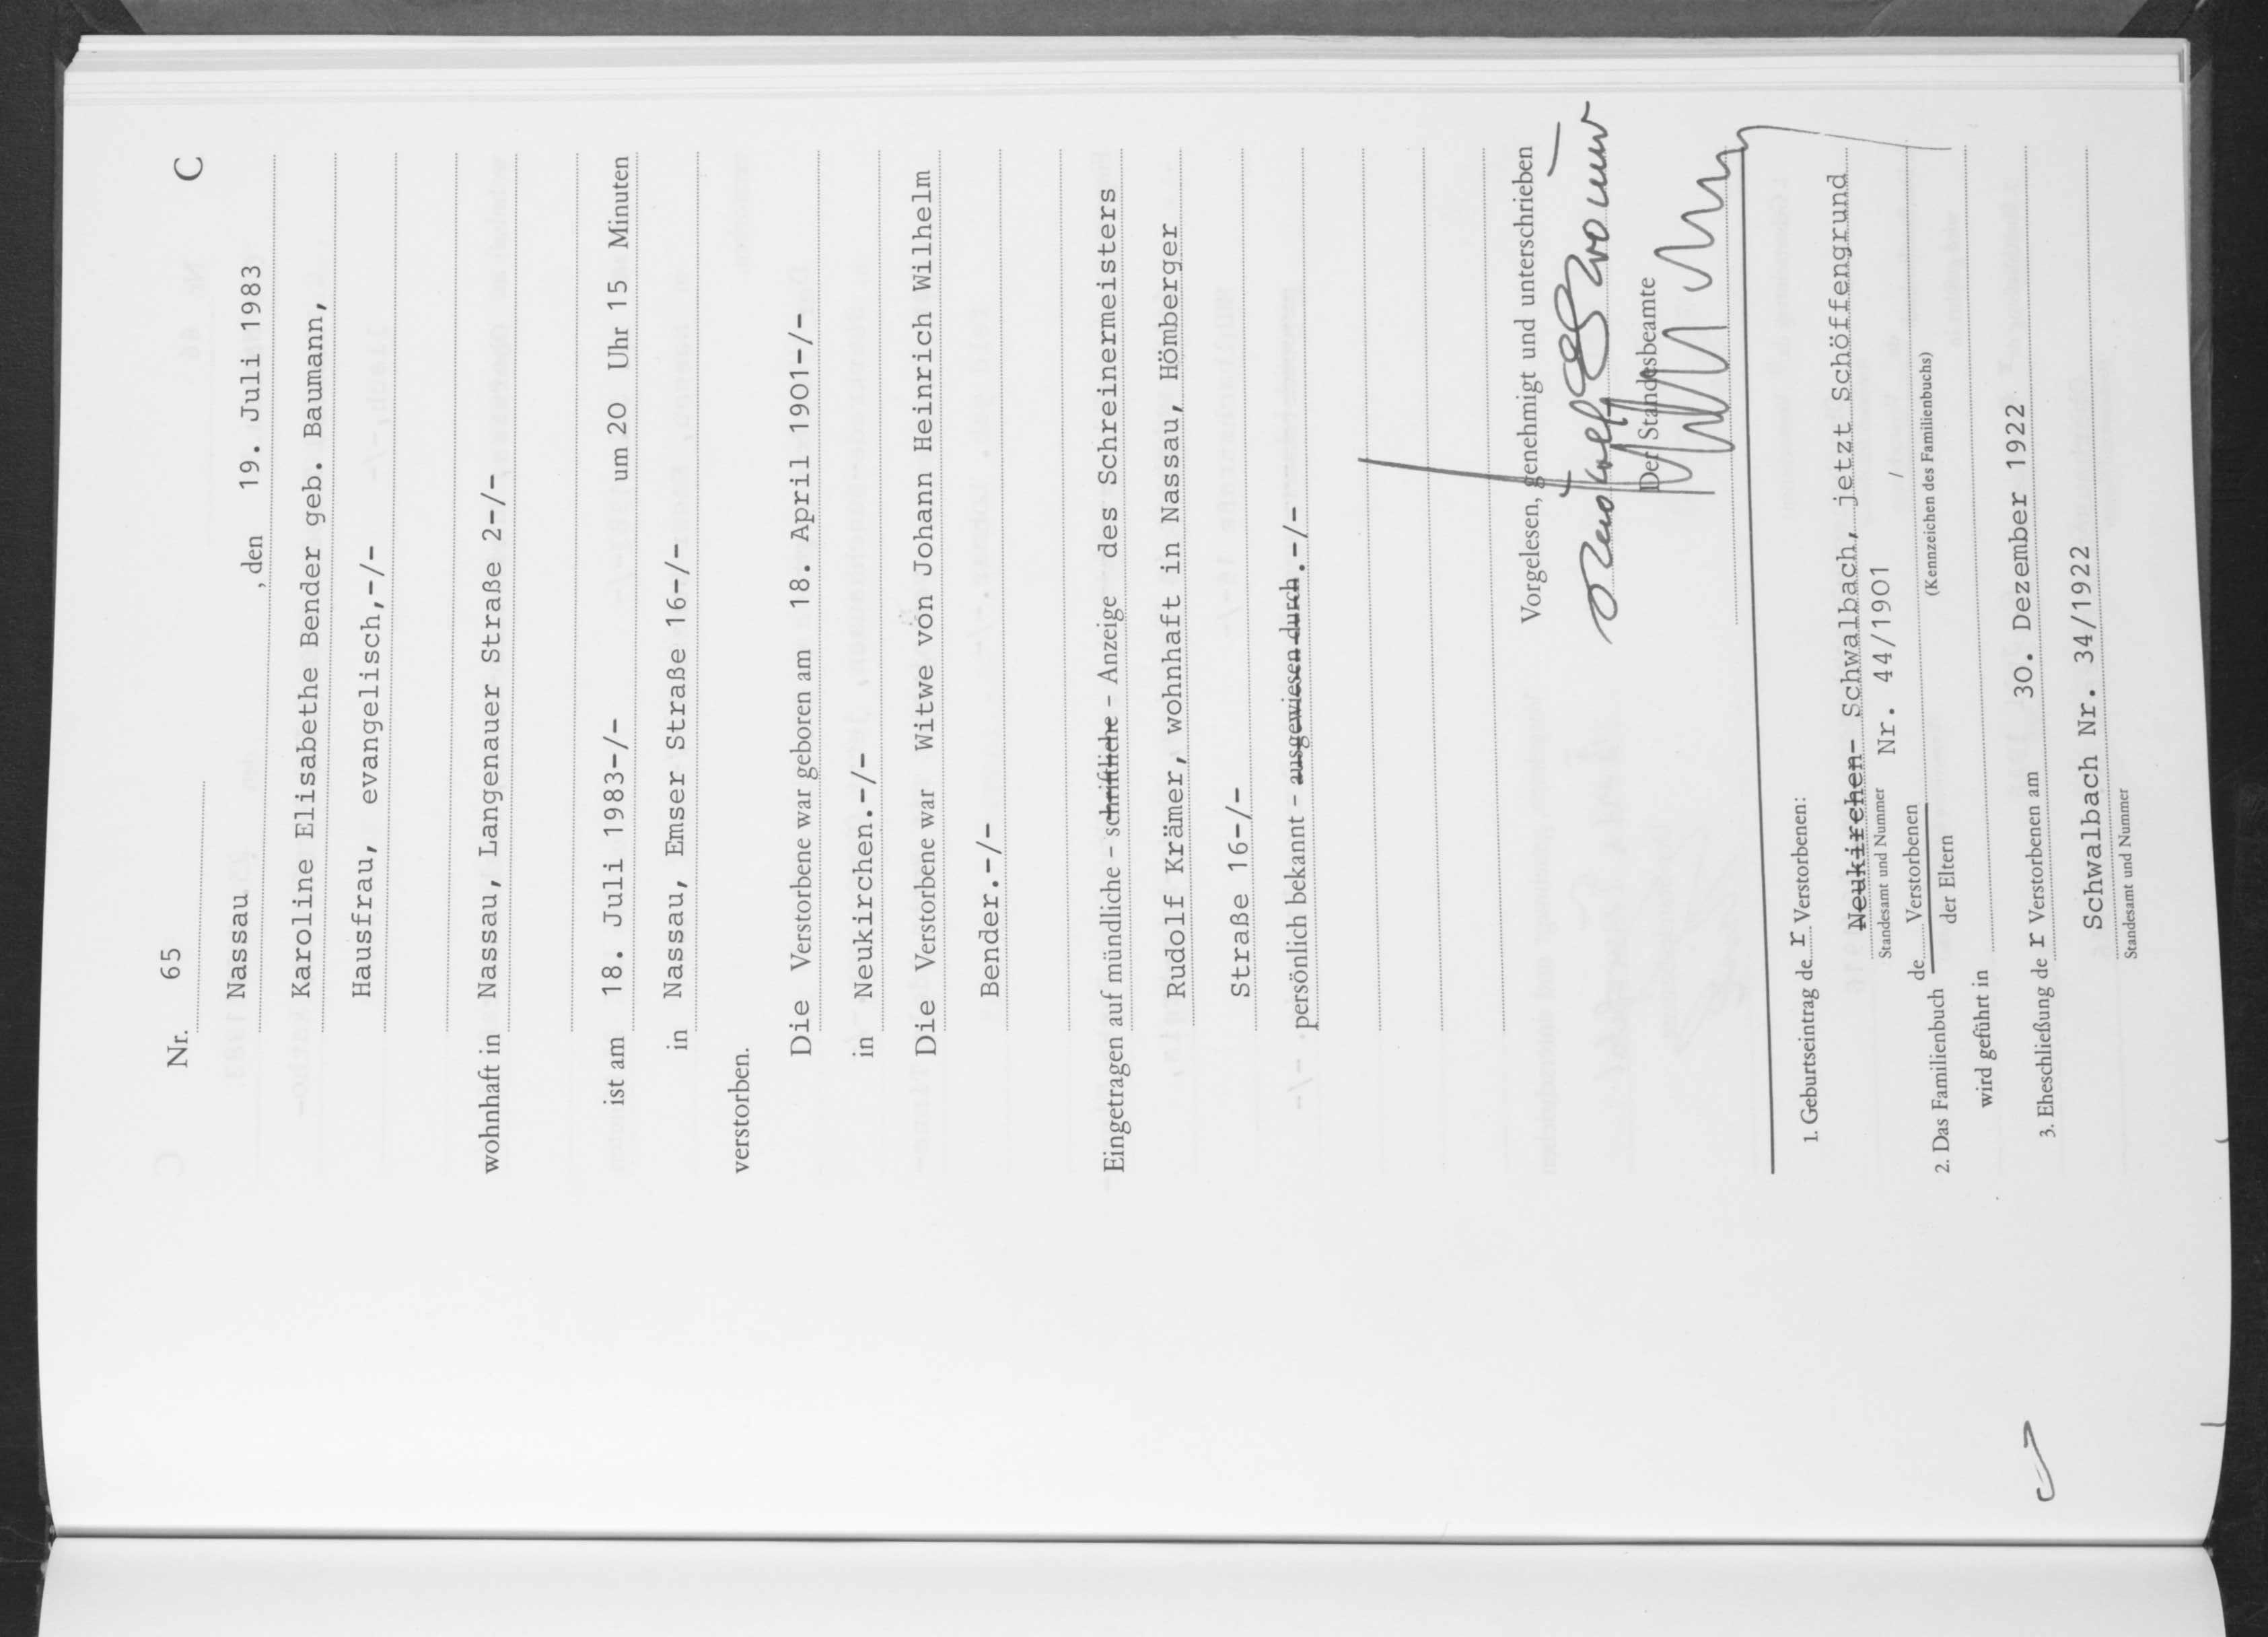 Nr. 65 C
Nassau , den 19. Juli 1983
Karoline Elisabethe Bender geb. Baumann,
Hausfrau, evangelisch,-/-
wohnhaft in Nassau, Langenauer Straße 2-/-
ist am 18. Juli 1983-/- um 20 Uhr 15 Minuten
in Nassau, Emser Straße 16-/-
verstorben.
Die Verstorbene war geboren am 18. April 1901-/-
in Neukirchen.-/-
Die Verstorbene war Witwe von Johann Heinrich Wilhelm
Bender.-/-
Eingetragen auf mündliche - schriftliche - Anzeige des Schreinermeisters
Rudolf Krämer, wohnhaft in Nassau, Hömberger
Straße 16-/-
persönlich bekannt - ausgewiesen durch.-/-
Vorgelesen, genehmigt und unterschrieben
Rudolf
Der Standesbeamte
1. Geburtseintrag de r Verstorbenen:
Neukirchen- Schwalbach, jetzt Schöffengrund
Standesamt und Nummer Nr. 44/1901 /
2. Das Familienbuch de Verstorbenen
der Eltern
(Kennzeichen des Familienbuchs)
wird geführt in
3. Eheschließung de r Verstorbenen am 30. Dezember 1922
Schwalbach Nr. 34/1922
Standesamt und Nummer